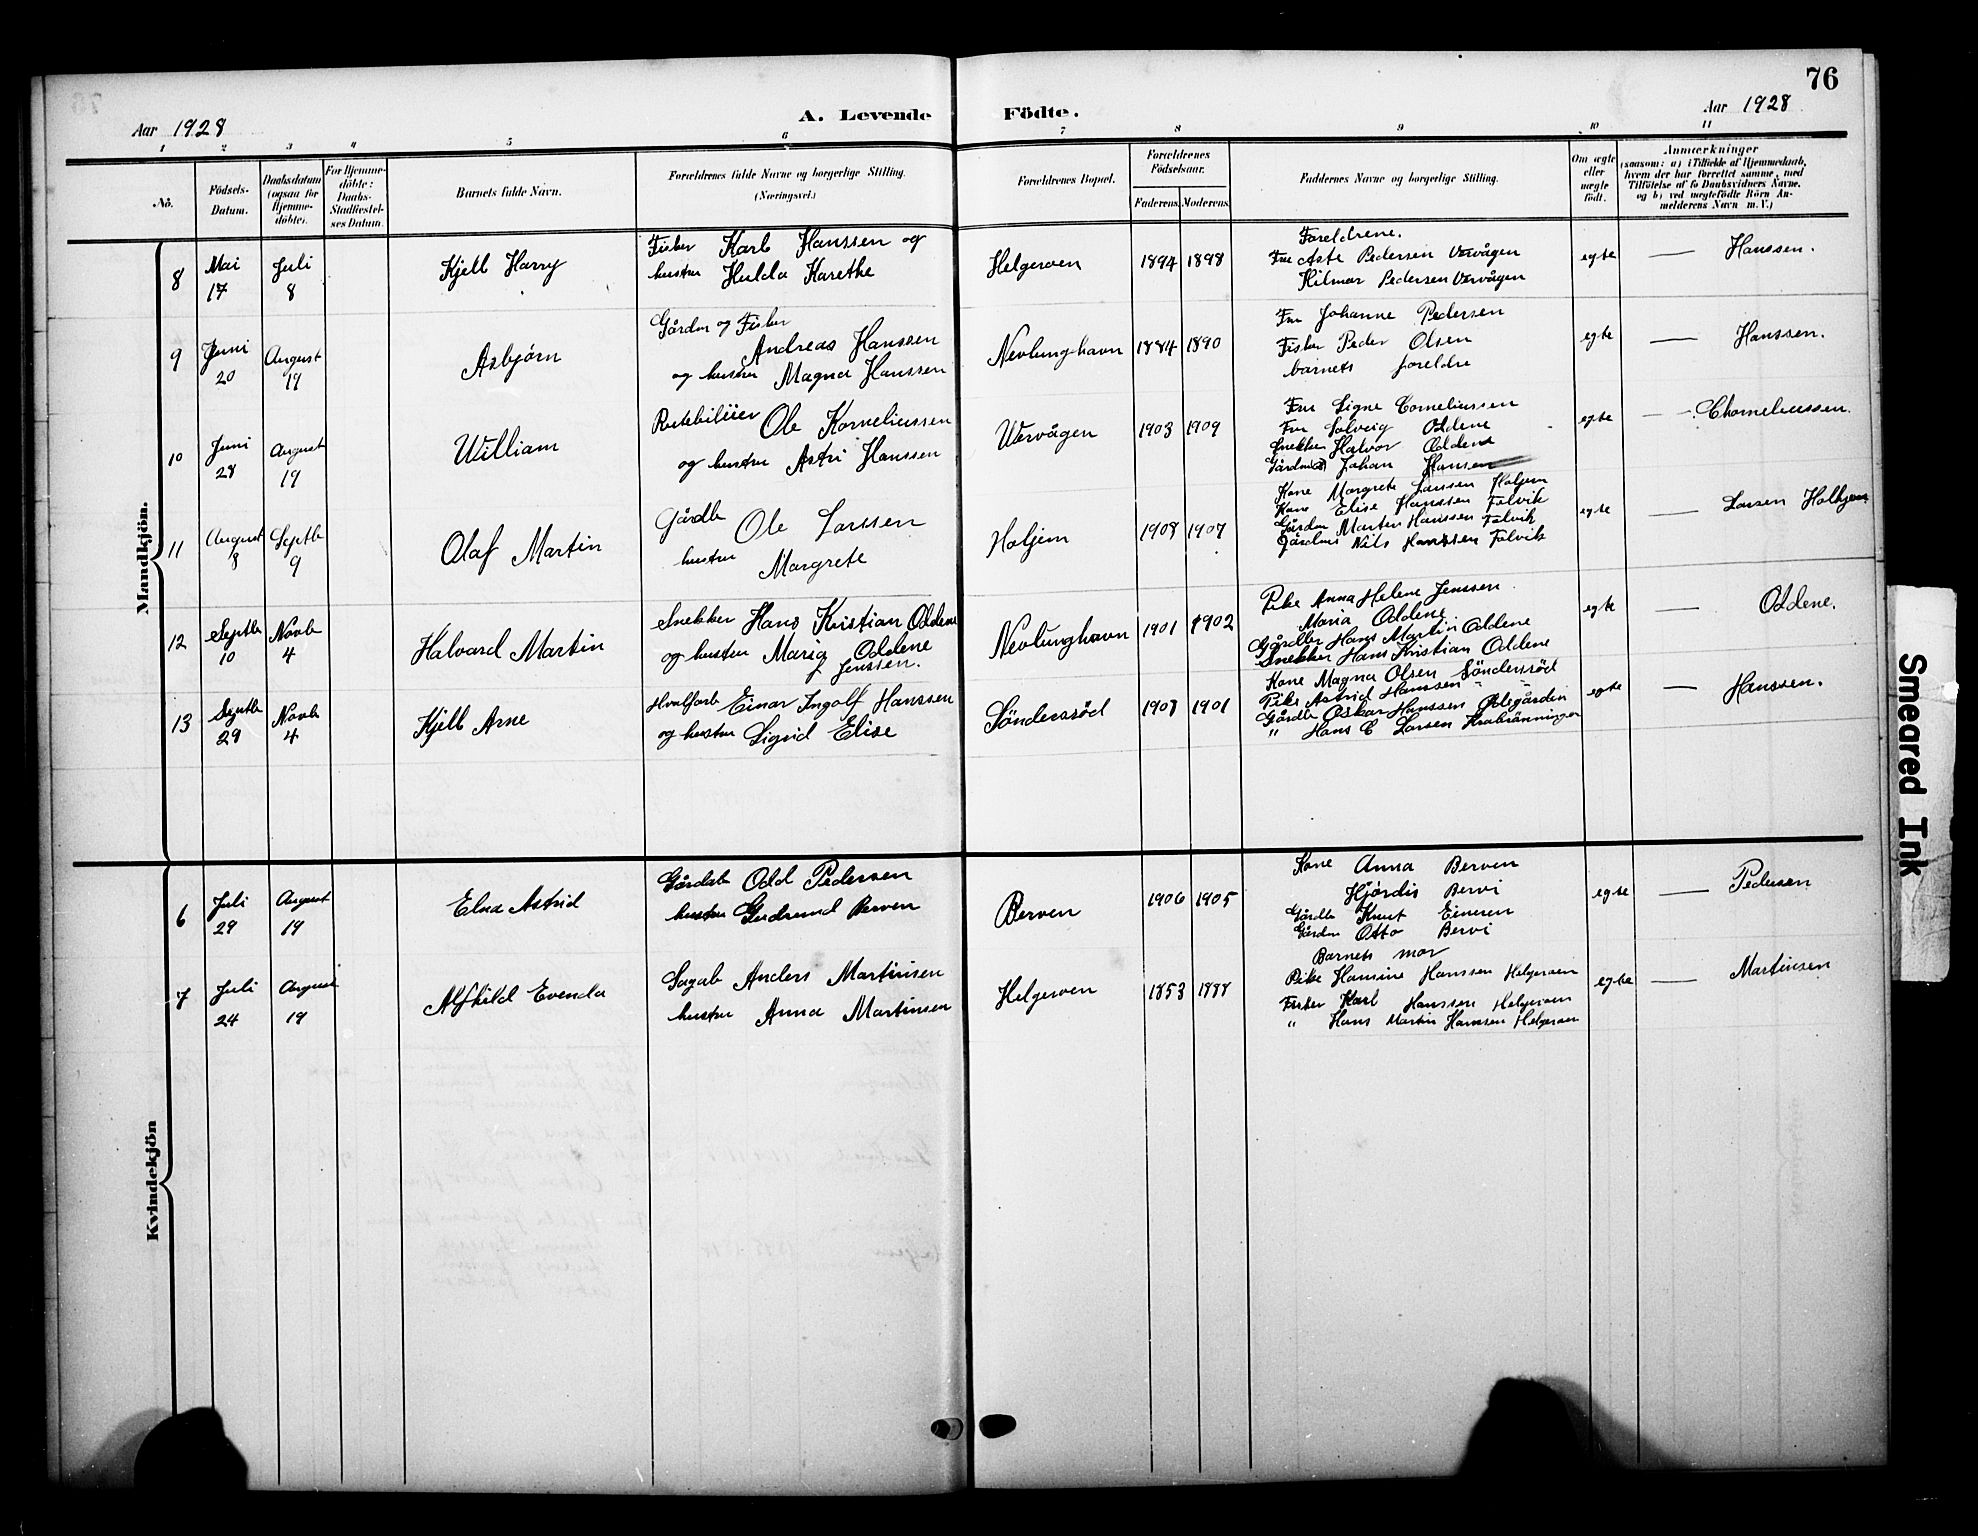 76
Aar 1928
A. Levende
Födte.
Aar 1928
1 2 3 4 5 6 7 8 9 10 11
No.
Födsels-
Datum.
Daabsdatum
(ogsaa for
Hjemme-
döbte).
For Hjemme-
döbte:
Daabs-
Stadfæstel-
ses Datum.
Barnets fulde Navn.
Forældrenes fulde Navne og borgerlige Stilling.
(Næringsvei.)
Forældrenes Bopæl.
Forældrenes
Födselsaar.
Faderens. Moderens.
Faddernes Navne og borgerlige Stilling.
Om ægte
eller
uægte
födt.
Anmærkninger
(saasom: a) i Tilfælde af Hjemmedaab,
hvem der har forrettet samme, med
Tilföielse af to Daabsvidners Navne,
og b) ved uægtefödte Börn An-
melderens Navn m. V.)
Mandkjön.
8
Mai
17
Juli
8
Kjell Harry
Fisker Karl Hanssen og
hustru Hulda Karethe
Helgeroen
1894 1898
Foreldrene.
Fru Aste Pedersen Vervågen
Hilmar Pedersen Vervågen
egte
— Hanssen.
9
Juni
20
August
19
Asbjørn
Gårdm og Fisker
Andreas Hanssen
og hustru Magna Hanssen
Nevlunghavn
1884 1890
Fru Johanne Pedersen
Fisker Peder Olsen
barnets foreldre
egte
— Hanssen.
10
Juni
28
August
19
William
Rutebileier Ole Korneliussen
og hustru Astri Hanssen
Vervågen
1903 1909
Fru Signe Corneliussen
Fru Solveig Oddene
Snekker Halvor Oddene
Johan Hansen
egte
— Chorneliussen.
11
August
8
Septb
9
Olaf Martin
Gårdb Ole Larssen
hustru Margrete
Holjem
1908 1907
Kone Margrete Larssen Holjem
Kone Elise Hanssen Falvik
Gårdm Marten Hanssen Falvik
Gårdm Nils Hanssen Falvik
egte
— Larsen Holkjem
12
Septb
10
Novb
4
Halvard Martin
Snekker Hans Kristian Oddene
og hustru Maria Oddene
f Jenssen.
Nevlunghavn
1901 1902
Pike Anna Helene Jenssen
Maria Oddene
Gårdbr Hans Martin Oddene
Snekker Hans Kristian Oddene
egte
— Oddene.
13
Septb
29
Novb
4
Kjell Arne
Hvalfarb Einar Ingolf Hanssen
og hustru Sigrid Elise
Sönderssöd
1907 1901
Kone Magna Olsen Sönderssöd
Pike Astrid Hanssen "
Gårdb Oskar Hanssen Ødegården
" Hans C Larsen Krabränningen
egte
— Hanssen.
Kvindekjön
6
Juli
29
August
19
Elna Astrid
Gårdab Odd Pedersen
hustru Gudrund Berven
Berven
1906 1905
Kone Anna Berven
Hjördis Bervi
Gårdb Knut
Gårdm Otto Bervi
egte
— Pedersen
7
Juli
24
August
19
Alfhild Evenda
Sagab Anders Martinsen
hustru Anna Martinsen
Helgeroen
1853 1888
Barnets mor
Pike Hansine Hanssen Helgeroen
Fisker Karl Hanssen Helgeroen
" Hans Martin Hanssen Helgeroen
egte
— Martinsen
Smeared Ink